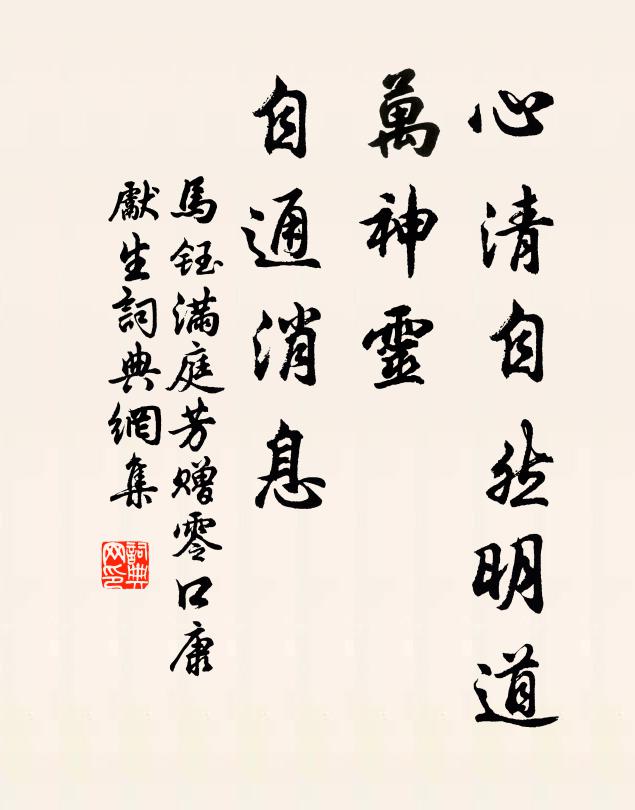 心清自然明道
萬神靈
自通消息
馬鈺滿庭芳贈零口康
獻生詞典網集
詞典
网印